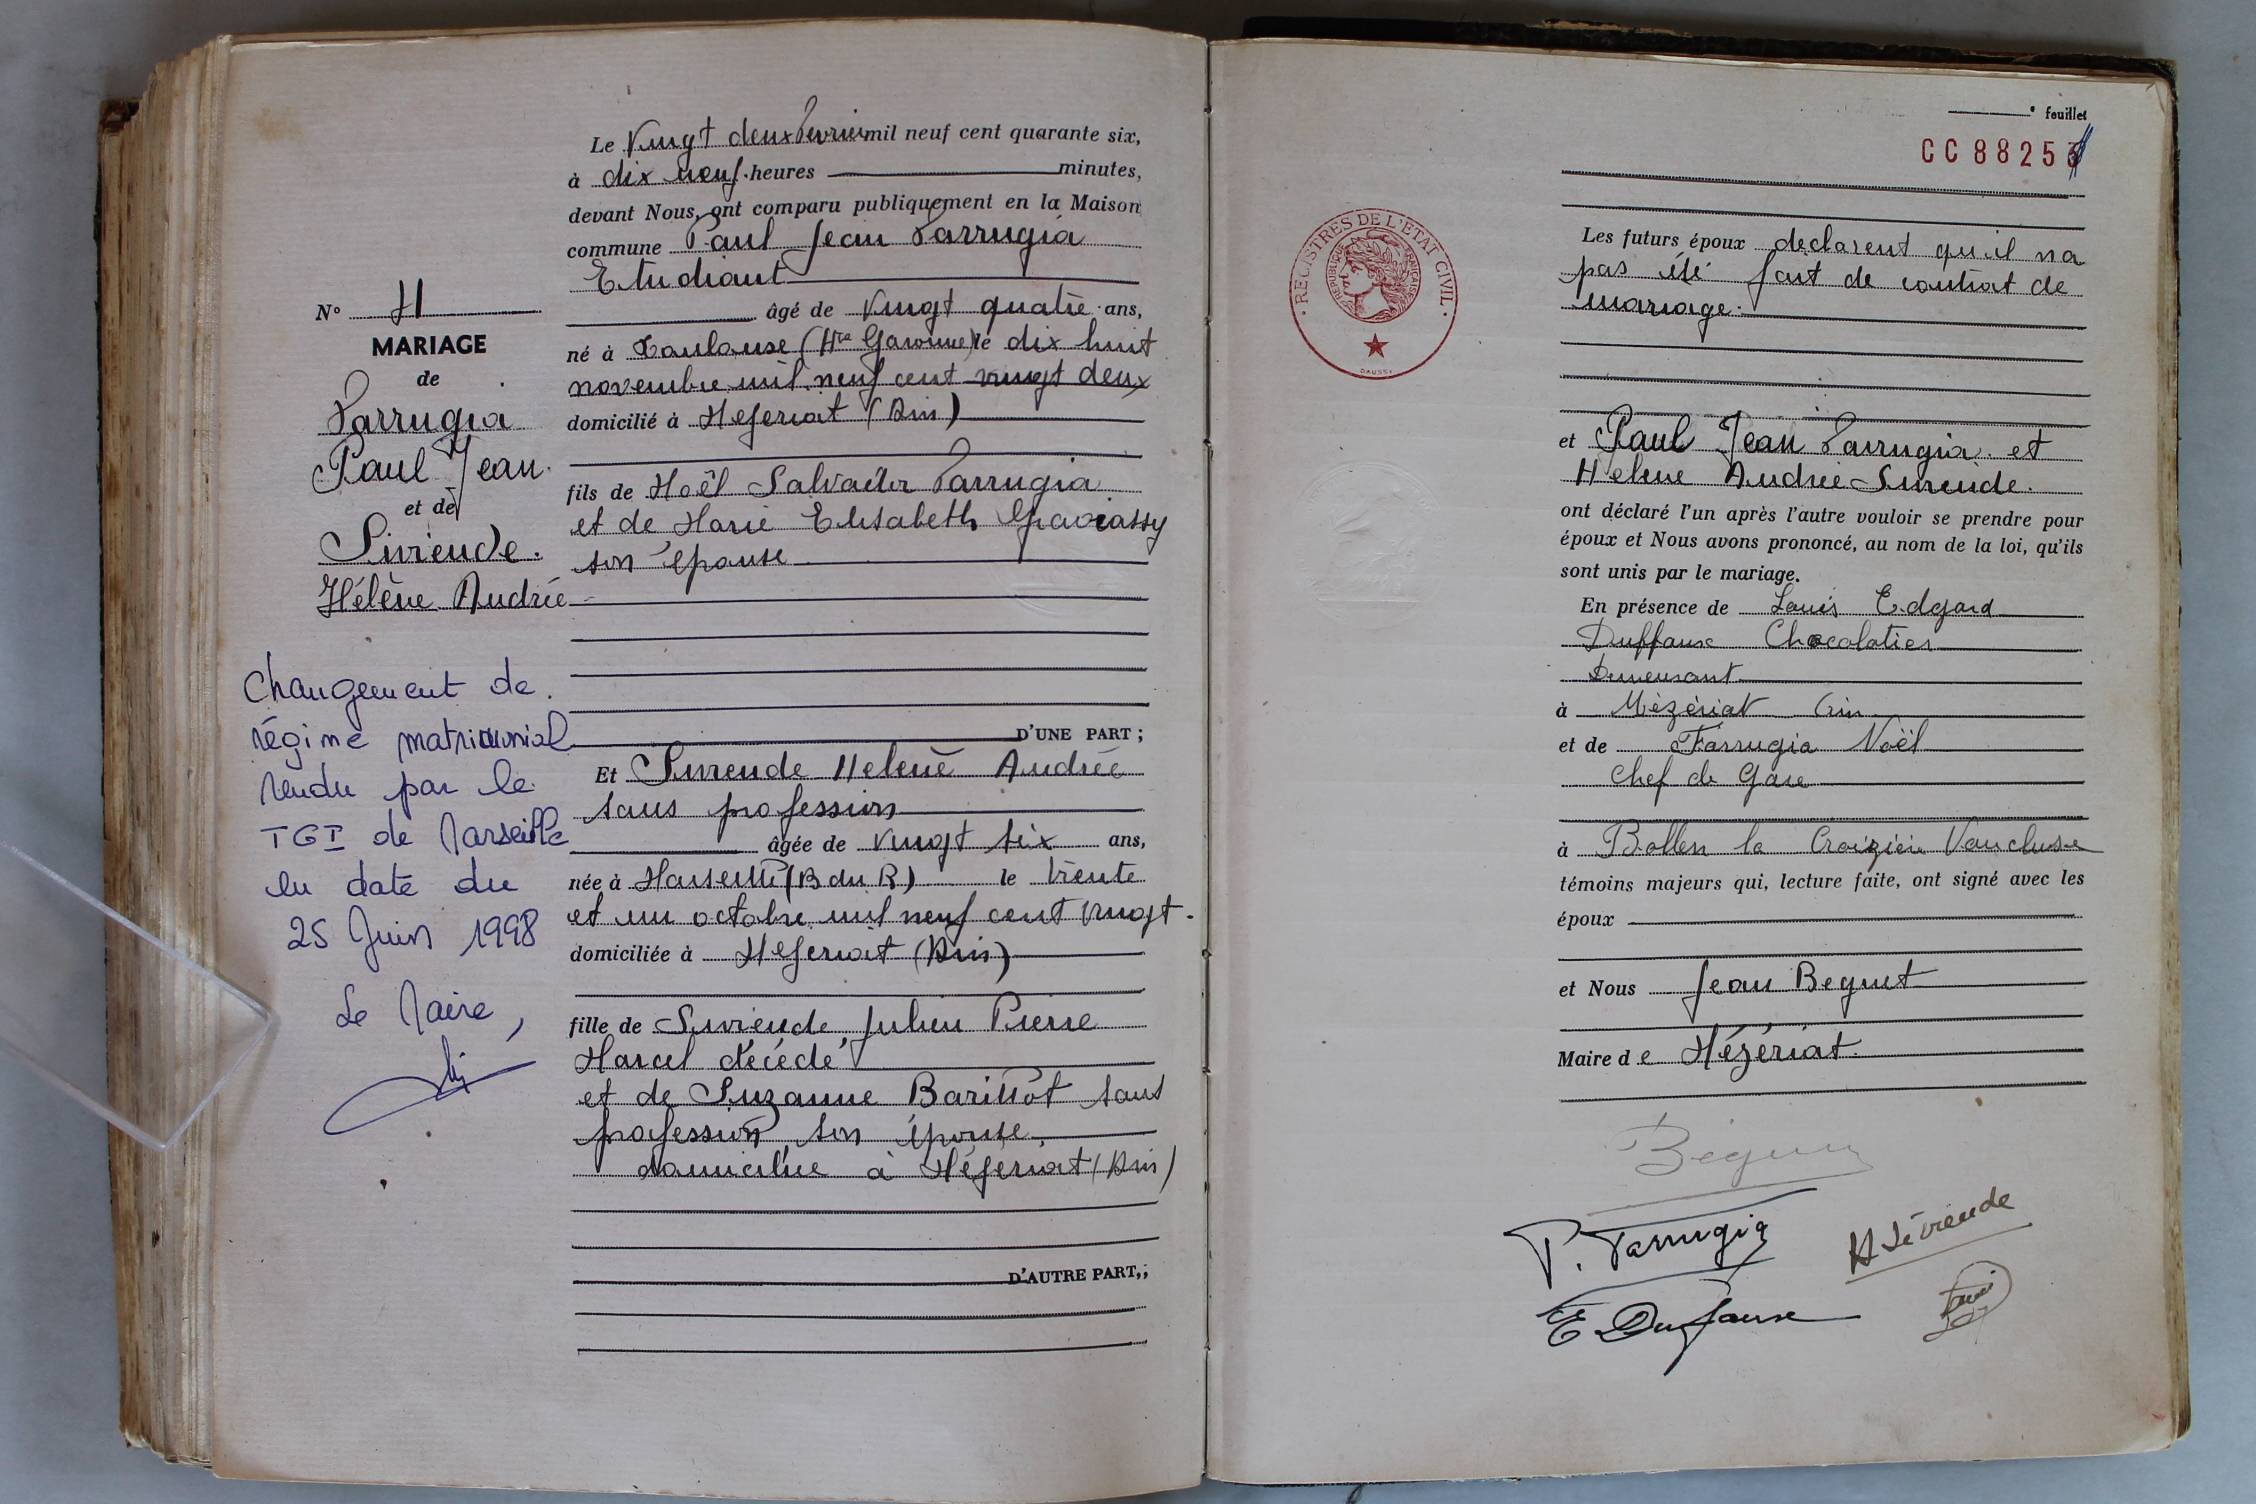 Le Vingt deux Fevrier mil neuf cent quarante six,
à dix neuf heures minutes,
devant Nous, ont comparu publiquement en la Maison
commune Paul Jean Farrugia
Etudiant
âgé de vingt quatre ans,
né à Toulouse (Hte Garonne) le dix huit
novembre mil neuf cent vingt deux
domicilié à Mezeriat (Ain)
fils de Noël Salvador Farrugia
et de Marie Elisabeth
son épouse
D'UNE PART ;
N°
MARIAGE
de
Farrugia
Paul Jean
et de
Sivieude.
Hélène Andrée
Changement de
régime matrimonial
rendu par le
TGI de Marseille
en date du
25 Juin 1998
Le Maire,
Et Sivieude Helene Andrée
sans profession
âgée de vingt six ans,
née à Marseille (B du R) le trente
et un octobre mil neuf cent vingt.
domiciliée à Mezeriat (Ain)
fille de Sivieude Julien Pierre
Marcel décédé
et de Suzanne Barittot sans
profession son épouse
domiciliée à Mézériat (Ain)
D'AUTRE PART,;
e feuillet
CC 8825
REGISTRES DE L'ETAT CIVIL
REPUBLIQUE FRANÇAISE
Les futurs époux declarent qu'il na
pas été fait de contrat de
mariage.
et Paul Jean Farrugia et
Helene Andrée Sivieude.
ont déclaré l'un après l'autre vouloir se prendre pour
époux et Nous avons prononcé, au nom de la loi, qu'ils
sont unis par le mariage.
En présence de Louis Edgard
Duffaux Chocolatier
Demeurant
à Mézériat Ain
et de Farrugia Noël
Chef de Gare
à Bollen la Croizière Vaucluse
témoins majeurs qui, lecture faite, ont signé avec les
époux
et Nous Jean Beguet
Maire de Mézériat.
P. Farrugia
H Sivieude
E Duffaux